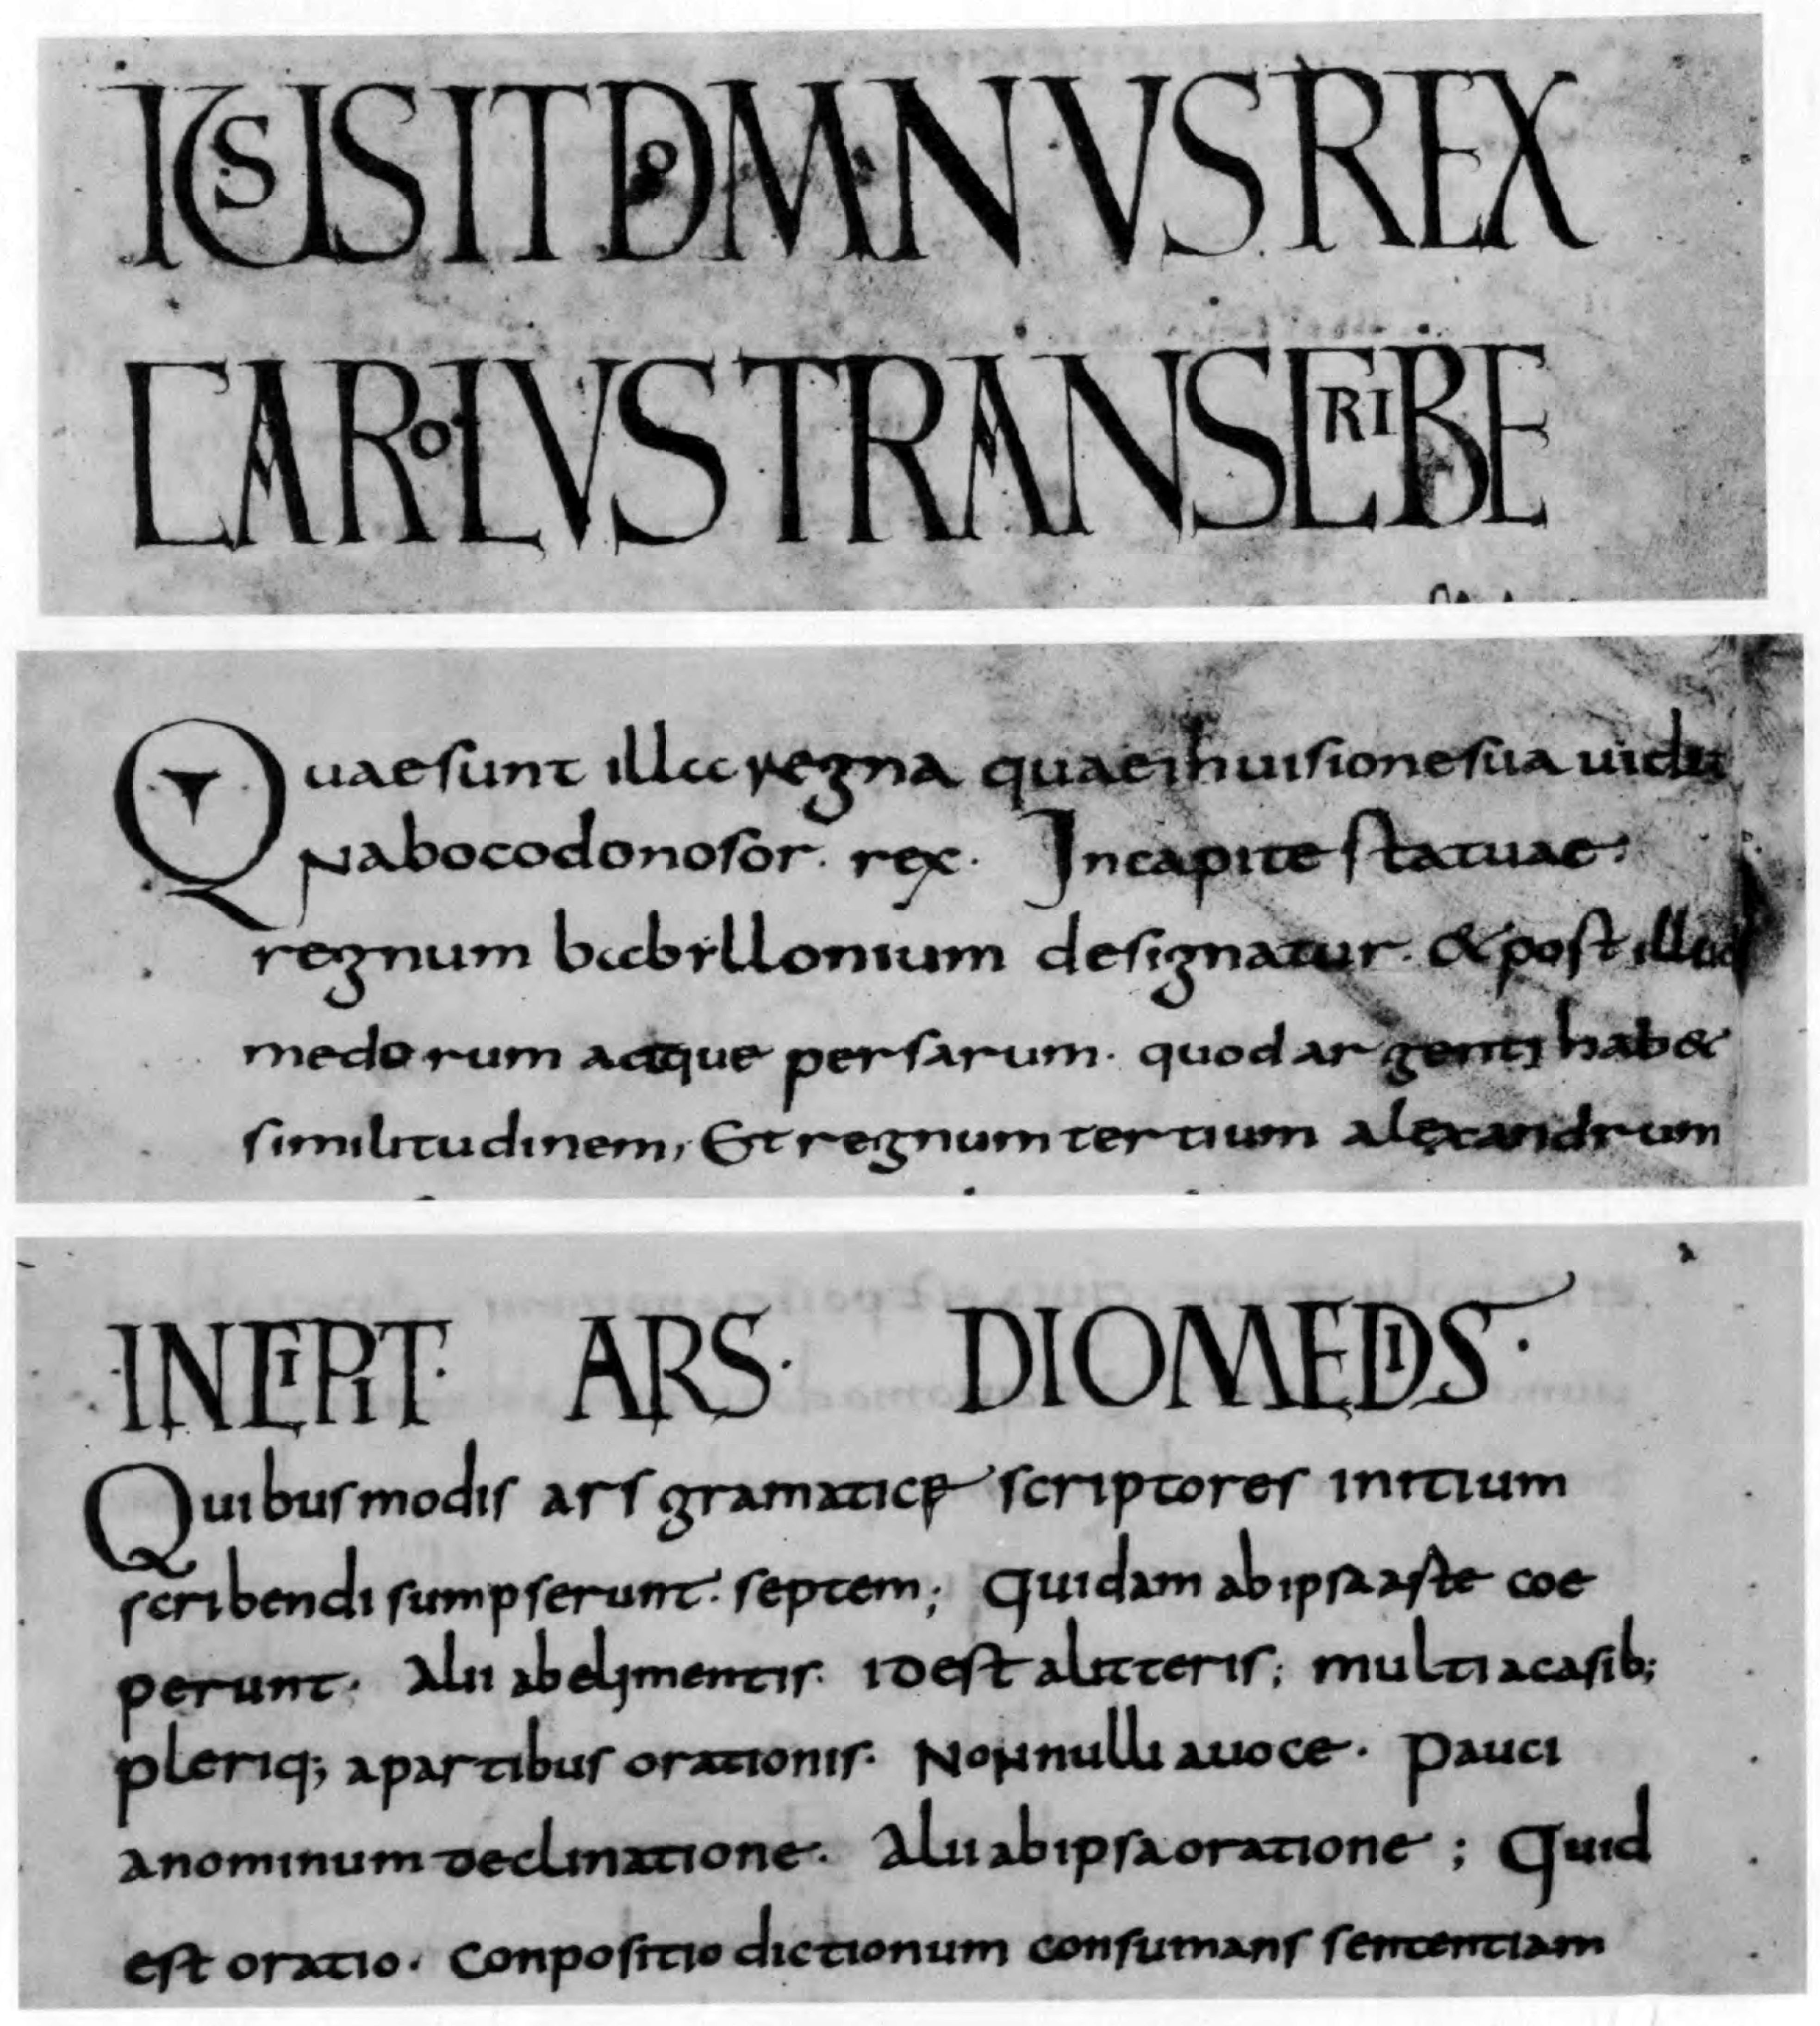 IUSSIT DOMNVS REX
CAROLVS TRANSCRIBE
Quae sunt illa regna quae in uisione sua uidit
Nabocodonosor· rex· In capite statuae·
regnum babyllonium designatur· & post illud
medorum atque persarum· quod argenti hab&
similitudinem, Et regnum tertium alexandrum
·INCIPIT· ARS· DIOMEDIS·
Quibus modis ars gramaticę scriptores initium
scribendi sumpserunt· septem; Quidam ab ipsa aste coe
perunt· Alii ab elimentis· id est a litteris; multi a casib;
pleriq; a partibus orationis· Nonnulli a uoce· Pauci
a nominum declinatione· Alii ab ipsa oratione; Quid
est oratio· Conpositio dictionum consumans sententiam